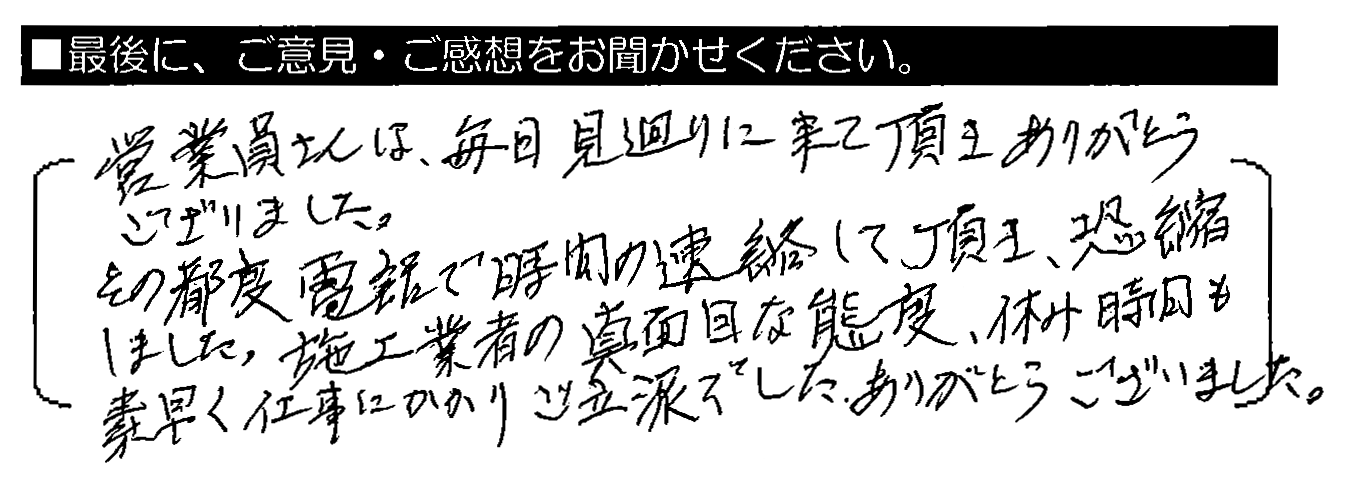 ■最後に、ご意見・ご感想をお聞かせください。
営業員さんは、毎日見廻りに来て頂きありがとう
ございりました。
その都度電話で時間の連絡して頂き、恐縮
しました。施工業者の真面目な態度、休み時間も
素早く仕事にかかりご立派でした。ありがとうございました。